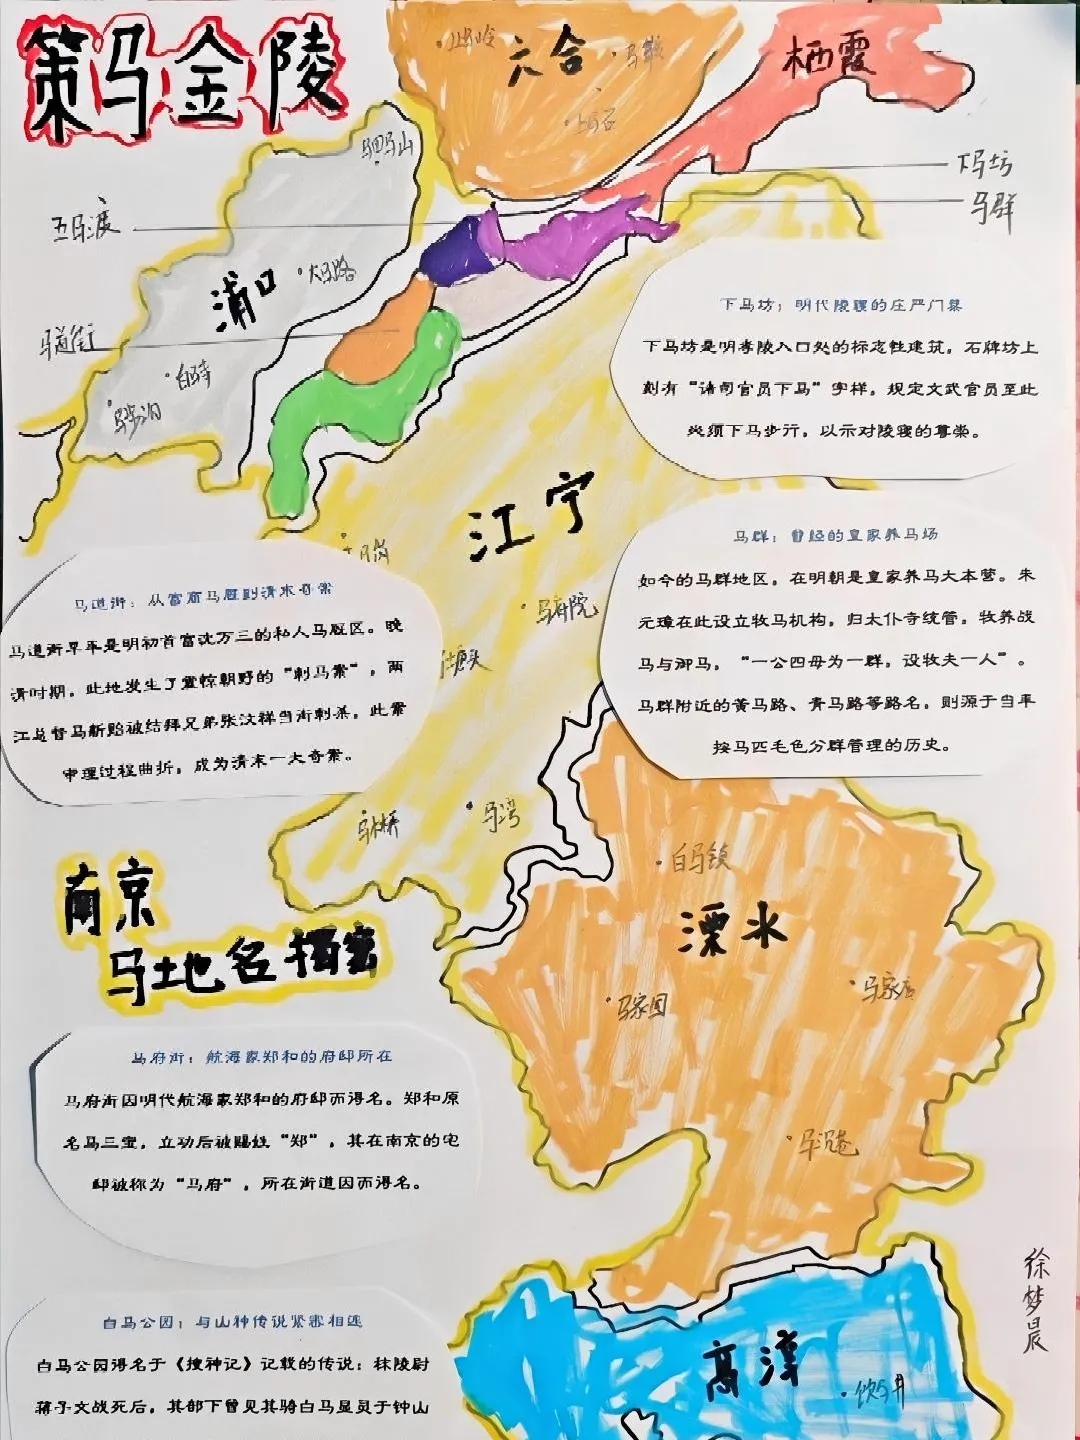 策马金陵
六合
马鞍
栖霞
驷马山
下马坊
马群
五马渡
浦口
大马路
马道街
白马寺
下马坊：明代陵寝的庄严门幕
下马坊是明孝陵入口处的标志性建筑，石牌坊上
刻有“诸司官员下马”字样，规定文武官员至此
必须下马步行，以示对陵寝的尊崇。
江宁
马群：曾经的皇家养马场
如今的马群地区，在明朝是皇家养马大本营。朱
元璋在此设立牧马机构，归太仆寺统管，牧养战
马与御马，“一公四母为一群，设牧夫一人”。
马群附近的黄马路、青马路等路名，则源于当年
按马匹毛色分群管理的历史。
马道街：从富商马厩到清末奇案
马道街早年是明初首富沈万三的私人马厩区。晚
清时期，此地发生了震惊朝野的“刺马案”，两
江总督马新贻被结拜兄弟张汶祥当街刺杀，此案
审理过程曲折，成为清末一大奇案。
马府院
马木桥
马湾
白马镇
溧水
南京
马地名揭密
马家园
马家店
马沉巷
马府街：航海家郑和的府邸所在
马府街因明代航海家郑和的府邸而得名。郑和原
名马三宝，立功后被赐姓“郑”，其在南京的宅
邸被称为“马府”，所在街道因而得名。
徐梦晨
白马公园：与山神传说紧密相连
白马公园得名于《搜神记》记载的传说：秣陵尉
蒋子文战死后，其部下曾见其骑白马显灵于钟山
高淳
饮马井